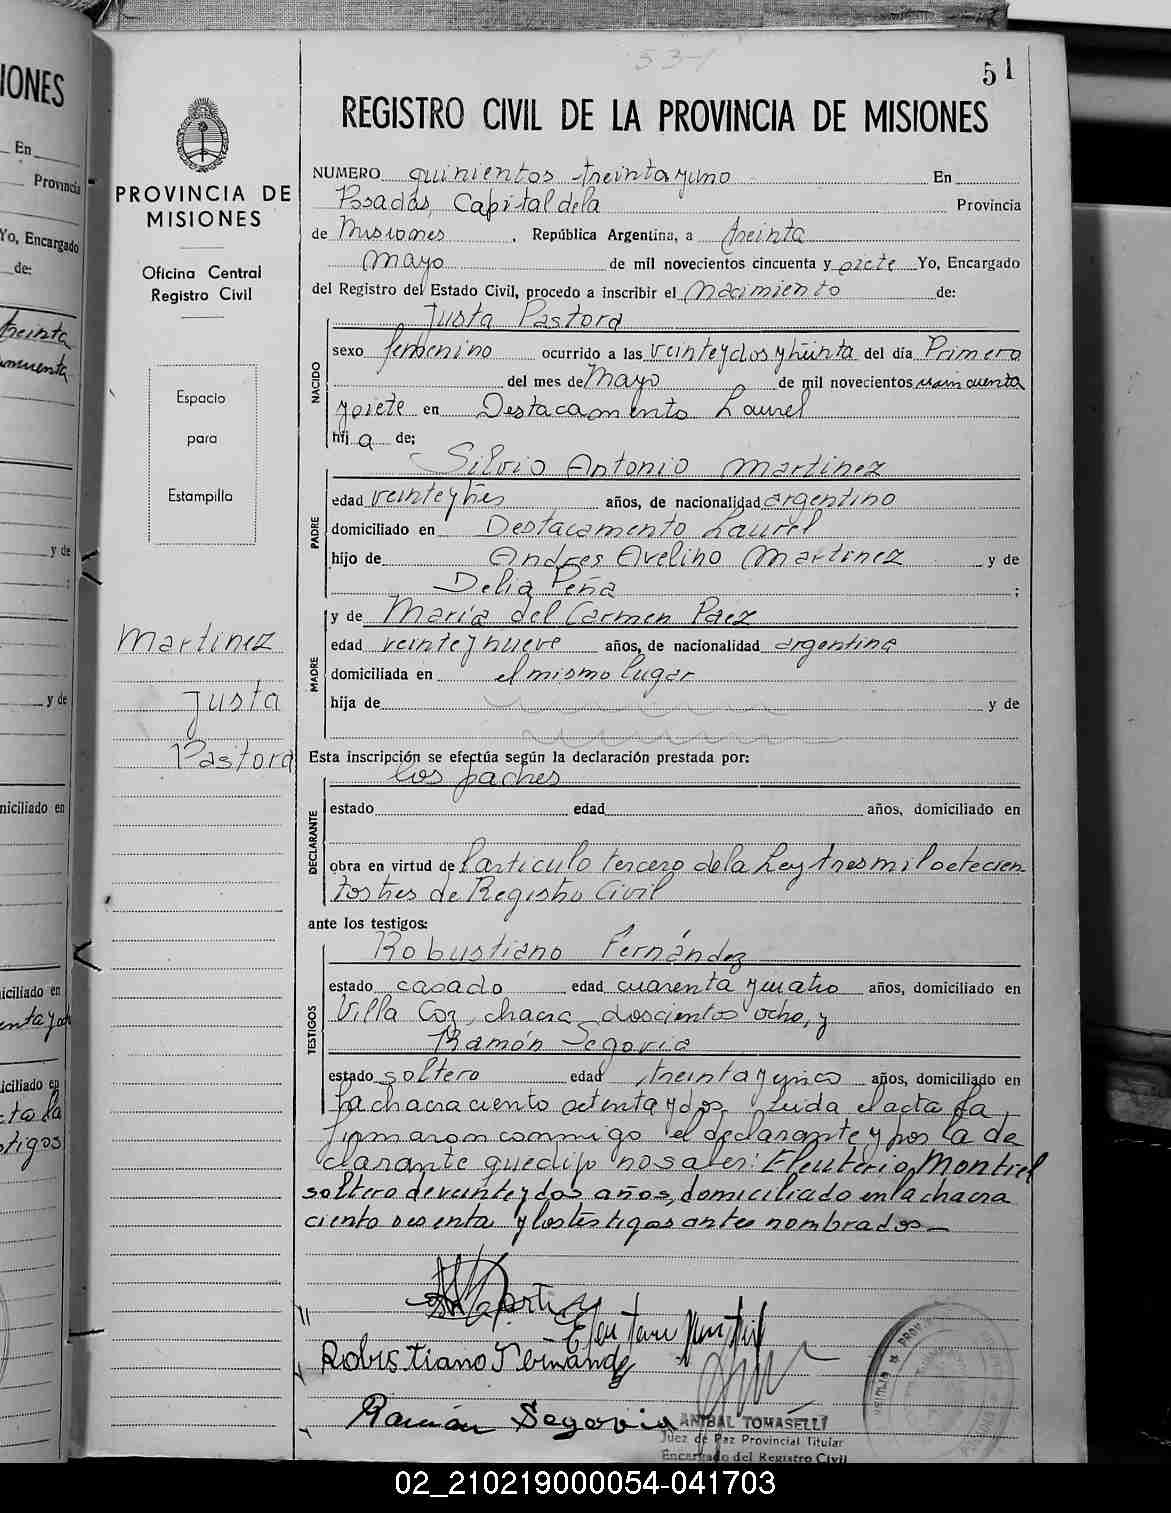 IONES
En
Provincia
Yo, Encargado
de:
treinta
y de
y de
niciliado en
iciliado en
iciliado en
cta la
stigos
PROVINCIA DE
MISIONES
Oficina Central
Registro Civil
Espacio
para
Estampilla
Martinez
Justa
Pastora
53-1
51
REGISTRO CIVIL DE LA PROVINCIA DE MISIONES
NUMERO quinientos treinta y uno En
Posadas, Capital de la Provincia
de Misiones, República Argentina, a treinta
Mayo de mil novecientos cincuenta y siete Yo, Encargado
del Registro del Estado Civil, procedo a inscribir el Nacimiento de:
Justa Pastora
NACIDO
sexo femenino ocurrido a las veinte y dos y treinta del día Primero
del mes de Mayo de mil novecientos cincuenta
y siete en Destacamento Laurel
hij a de:
Silvio Antonio Martinez
PADRE
edad veinte y tres años, de nacionalidad argentino
domiciliado en Destacamento Laurel
hijo de Andres Avelino Martinez y de
Delia Peña ;
MADRE
y de María del Carmen Paez
edad veinte y nueve años, de nacionalidad argentina
domiciliada en el mismo lugar
hija de y de
Esta inscripción se efectúa según la declaración prestada por:
los padres
DECLARANTE
estado edad años, domiciliado en
obra en virtud de l articulo tercero de la Ley tres mil setecien
tos tres de Registro Civil
ante los testigos:
Robustiano Fernández
TESTIGOS
estado casado edad cuarenta y cuatro años, domiciliado en
Villa Coz, chacra doscientos ocho, y
Ramón Segovia
estado soltero edad treinta y cinco años, domiciliado en
la chacra ciento setenta y dos. Leida el acta la
firmaron conmigo el declarante y por la de
clarante que dijo no saber: Eleuterio Montiel
soltero de veinte y dos años, domiciliado en la chacra
ciento sesenta y los testigos antes nombrados.—
Robustiano Fernandez
Ramón Segovia
ANIBAL TOMASELLI
Juez de Paz Provincial Titular
Encargado del Registro Civil
02_210219000054-041703